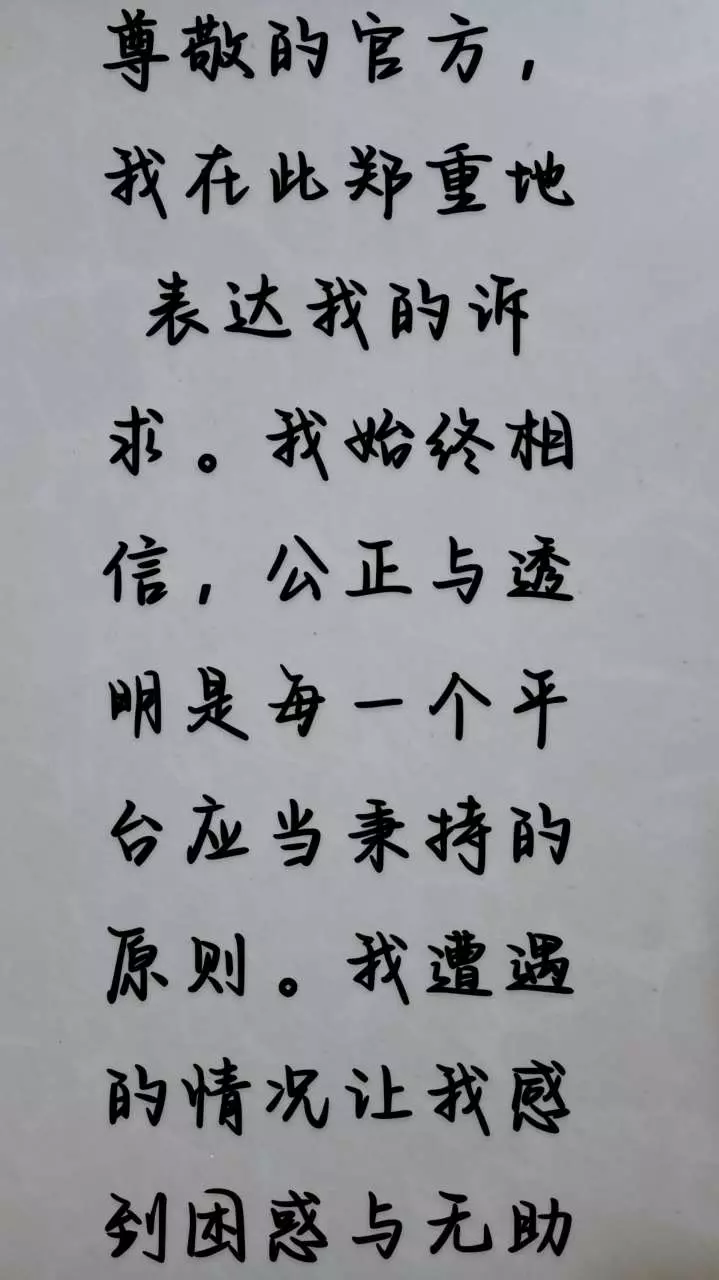 尊敬的官方，
我在此郑重地
表达我的诉
求。我始终相
信，公正与透
明是每一个平
台应当秉持的
原则。我遭遇
的情况让我感
到困惑与无助